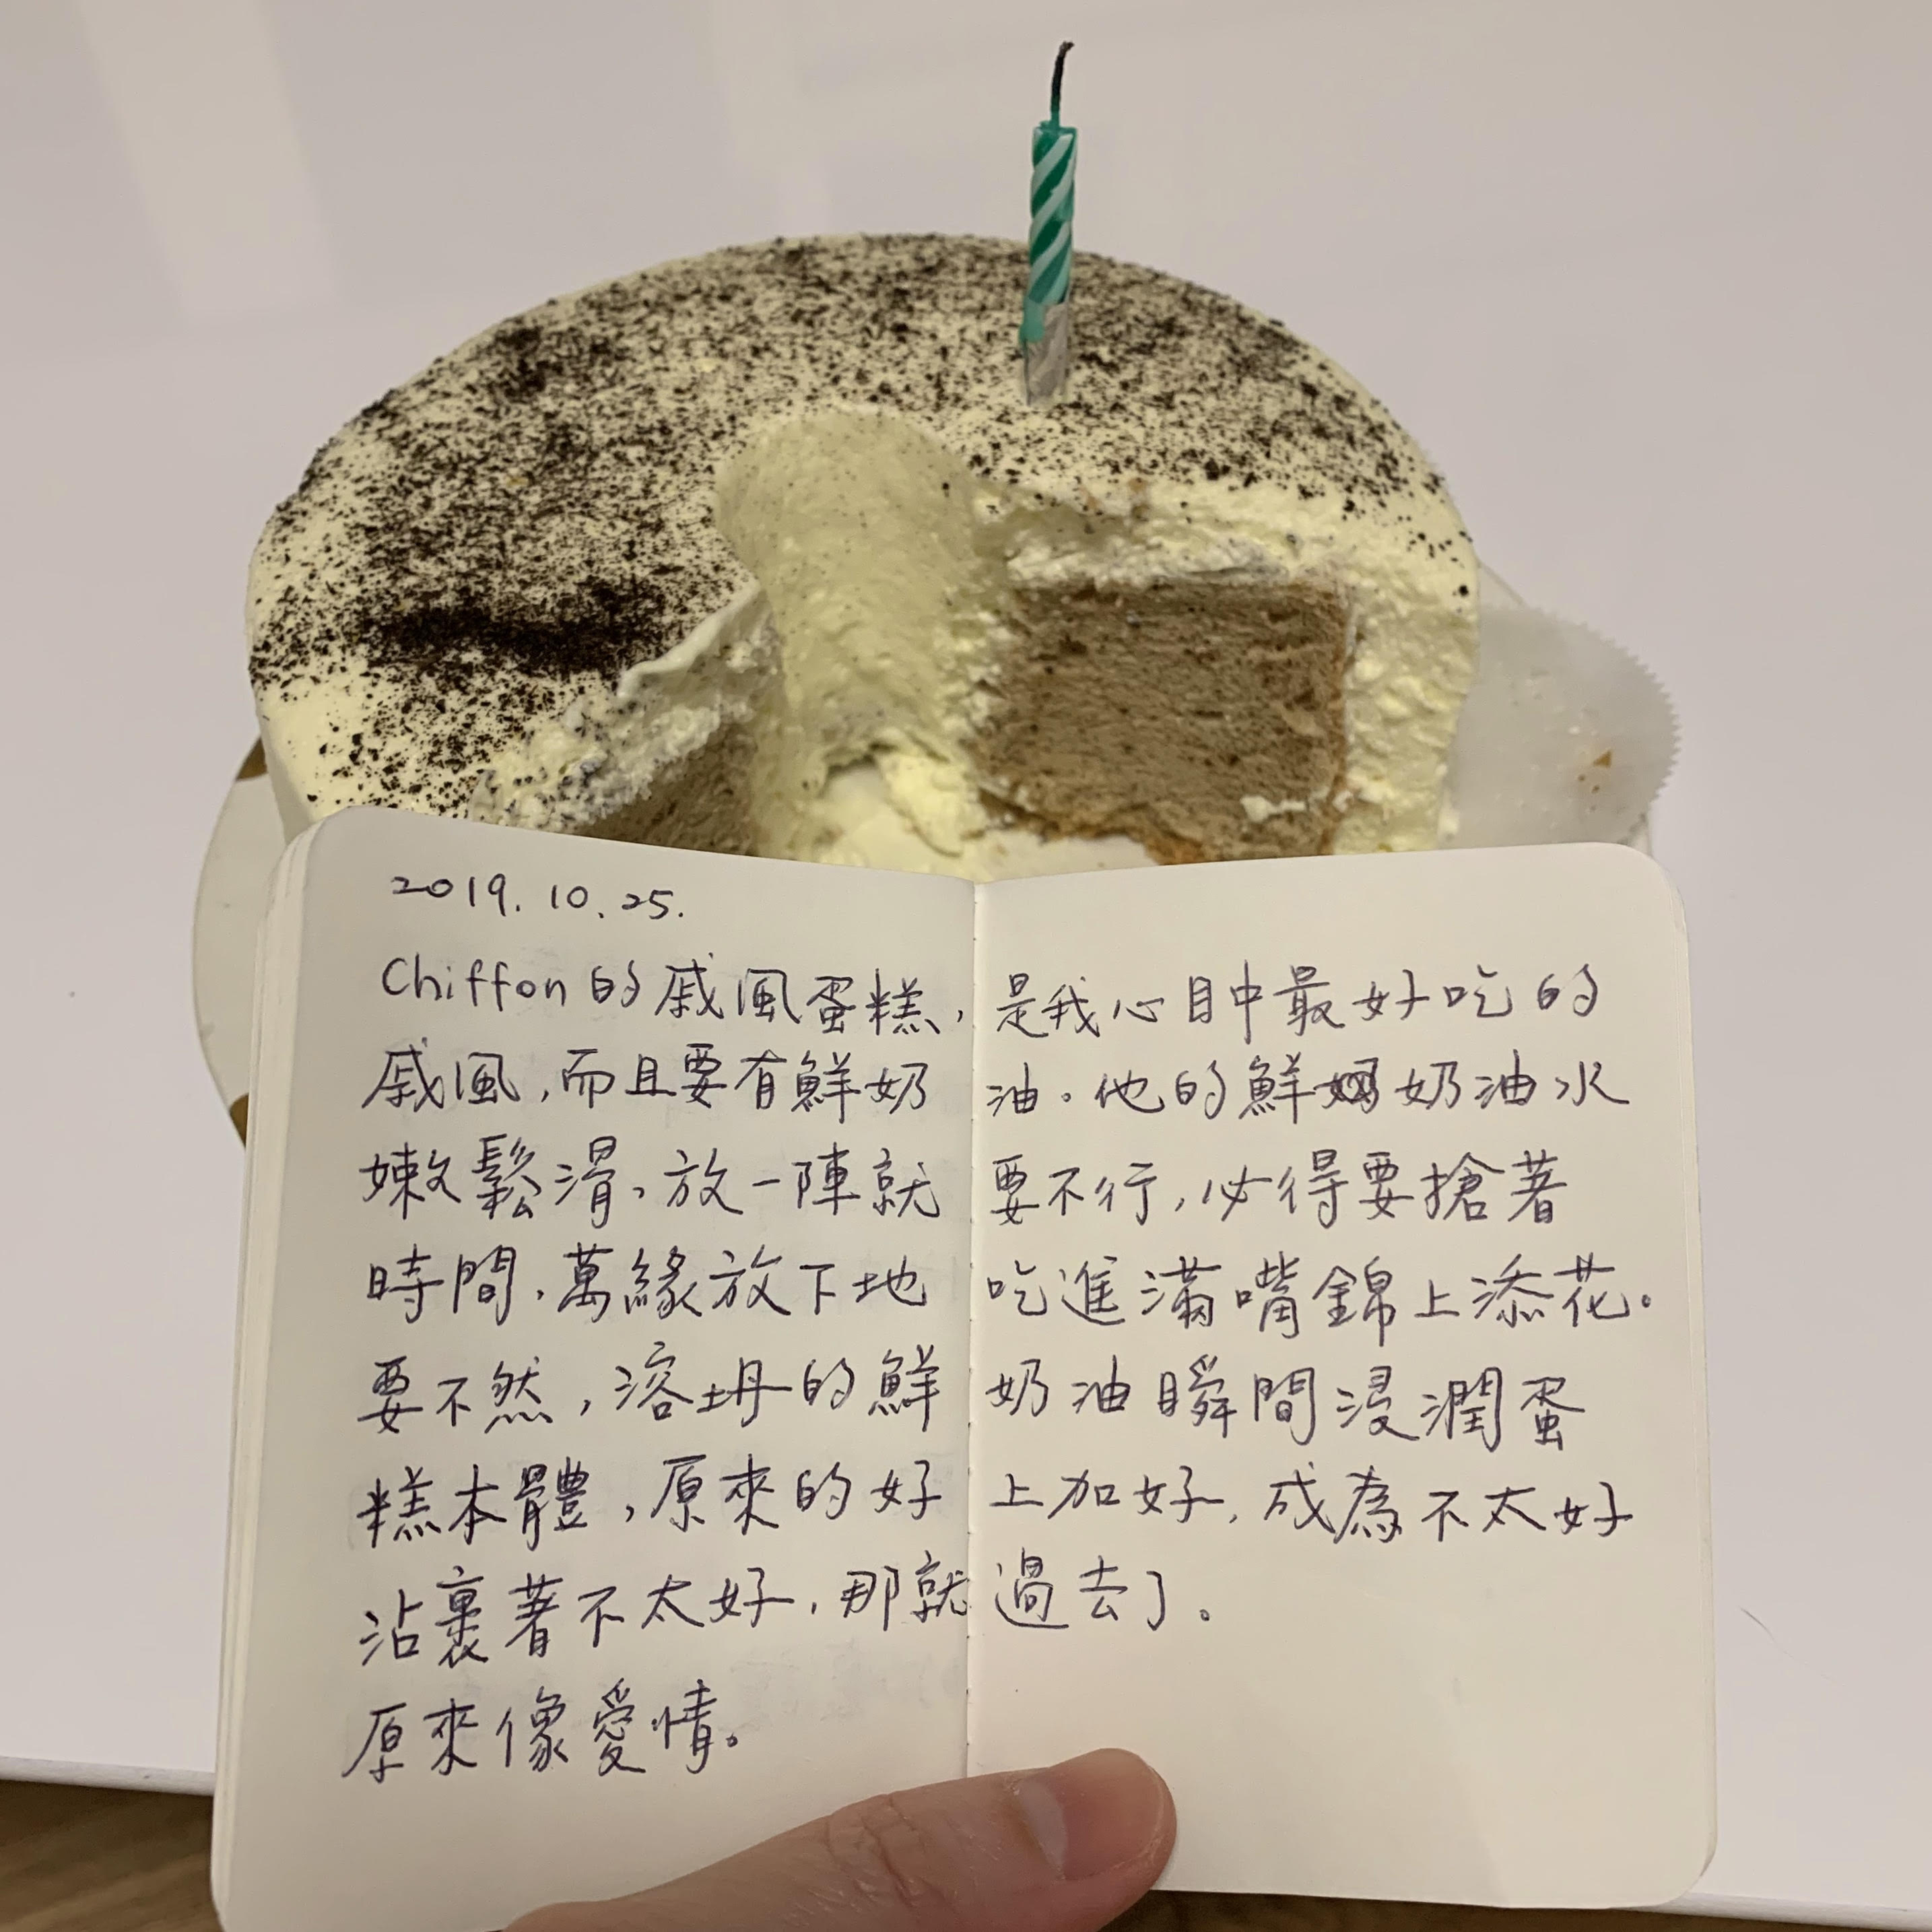 2019.10.25.
Chiffon的戚風蛋糕,是我心目中最好吃的
戚風,而且要有鮮奶油。他的鮮奶油水
嫩鬆滑,放一陣就要不行,必得要搶著
時間,萬緣放下地吃進滿嘴錦上添花。
要不然,溶坍的鮮奶油瞬間浸潤蛋
糕本體,原來的好上加好,成為不太好
沾裹著不太好,那就過去了。
原來像愛情。